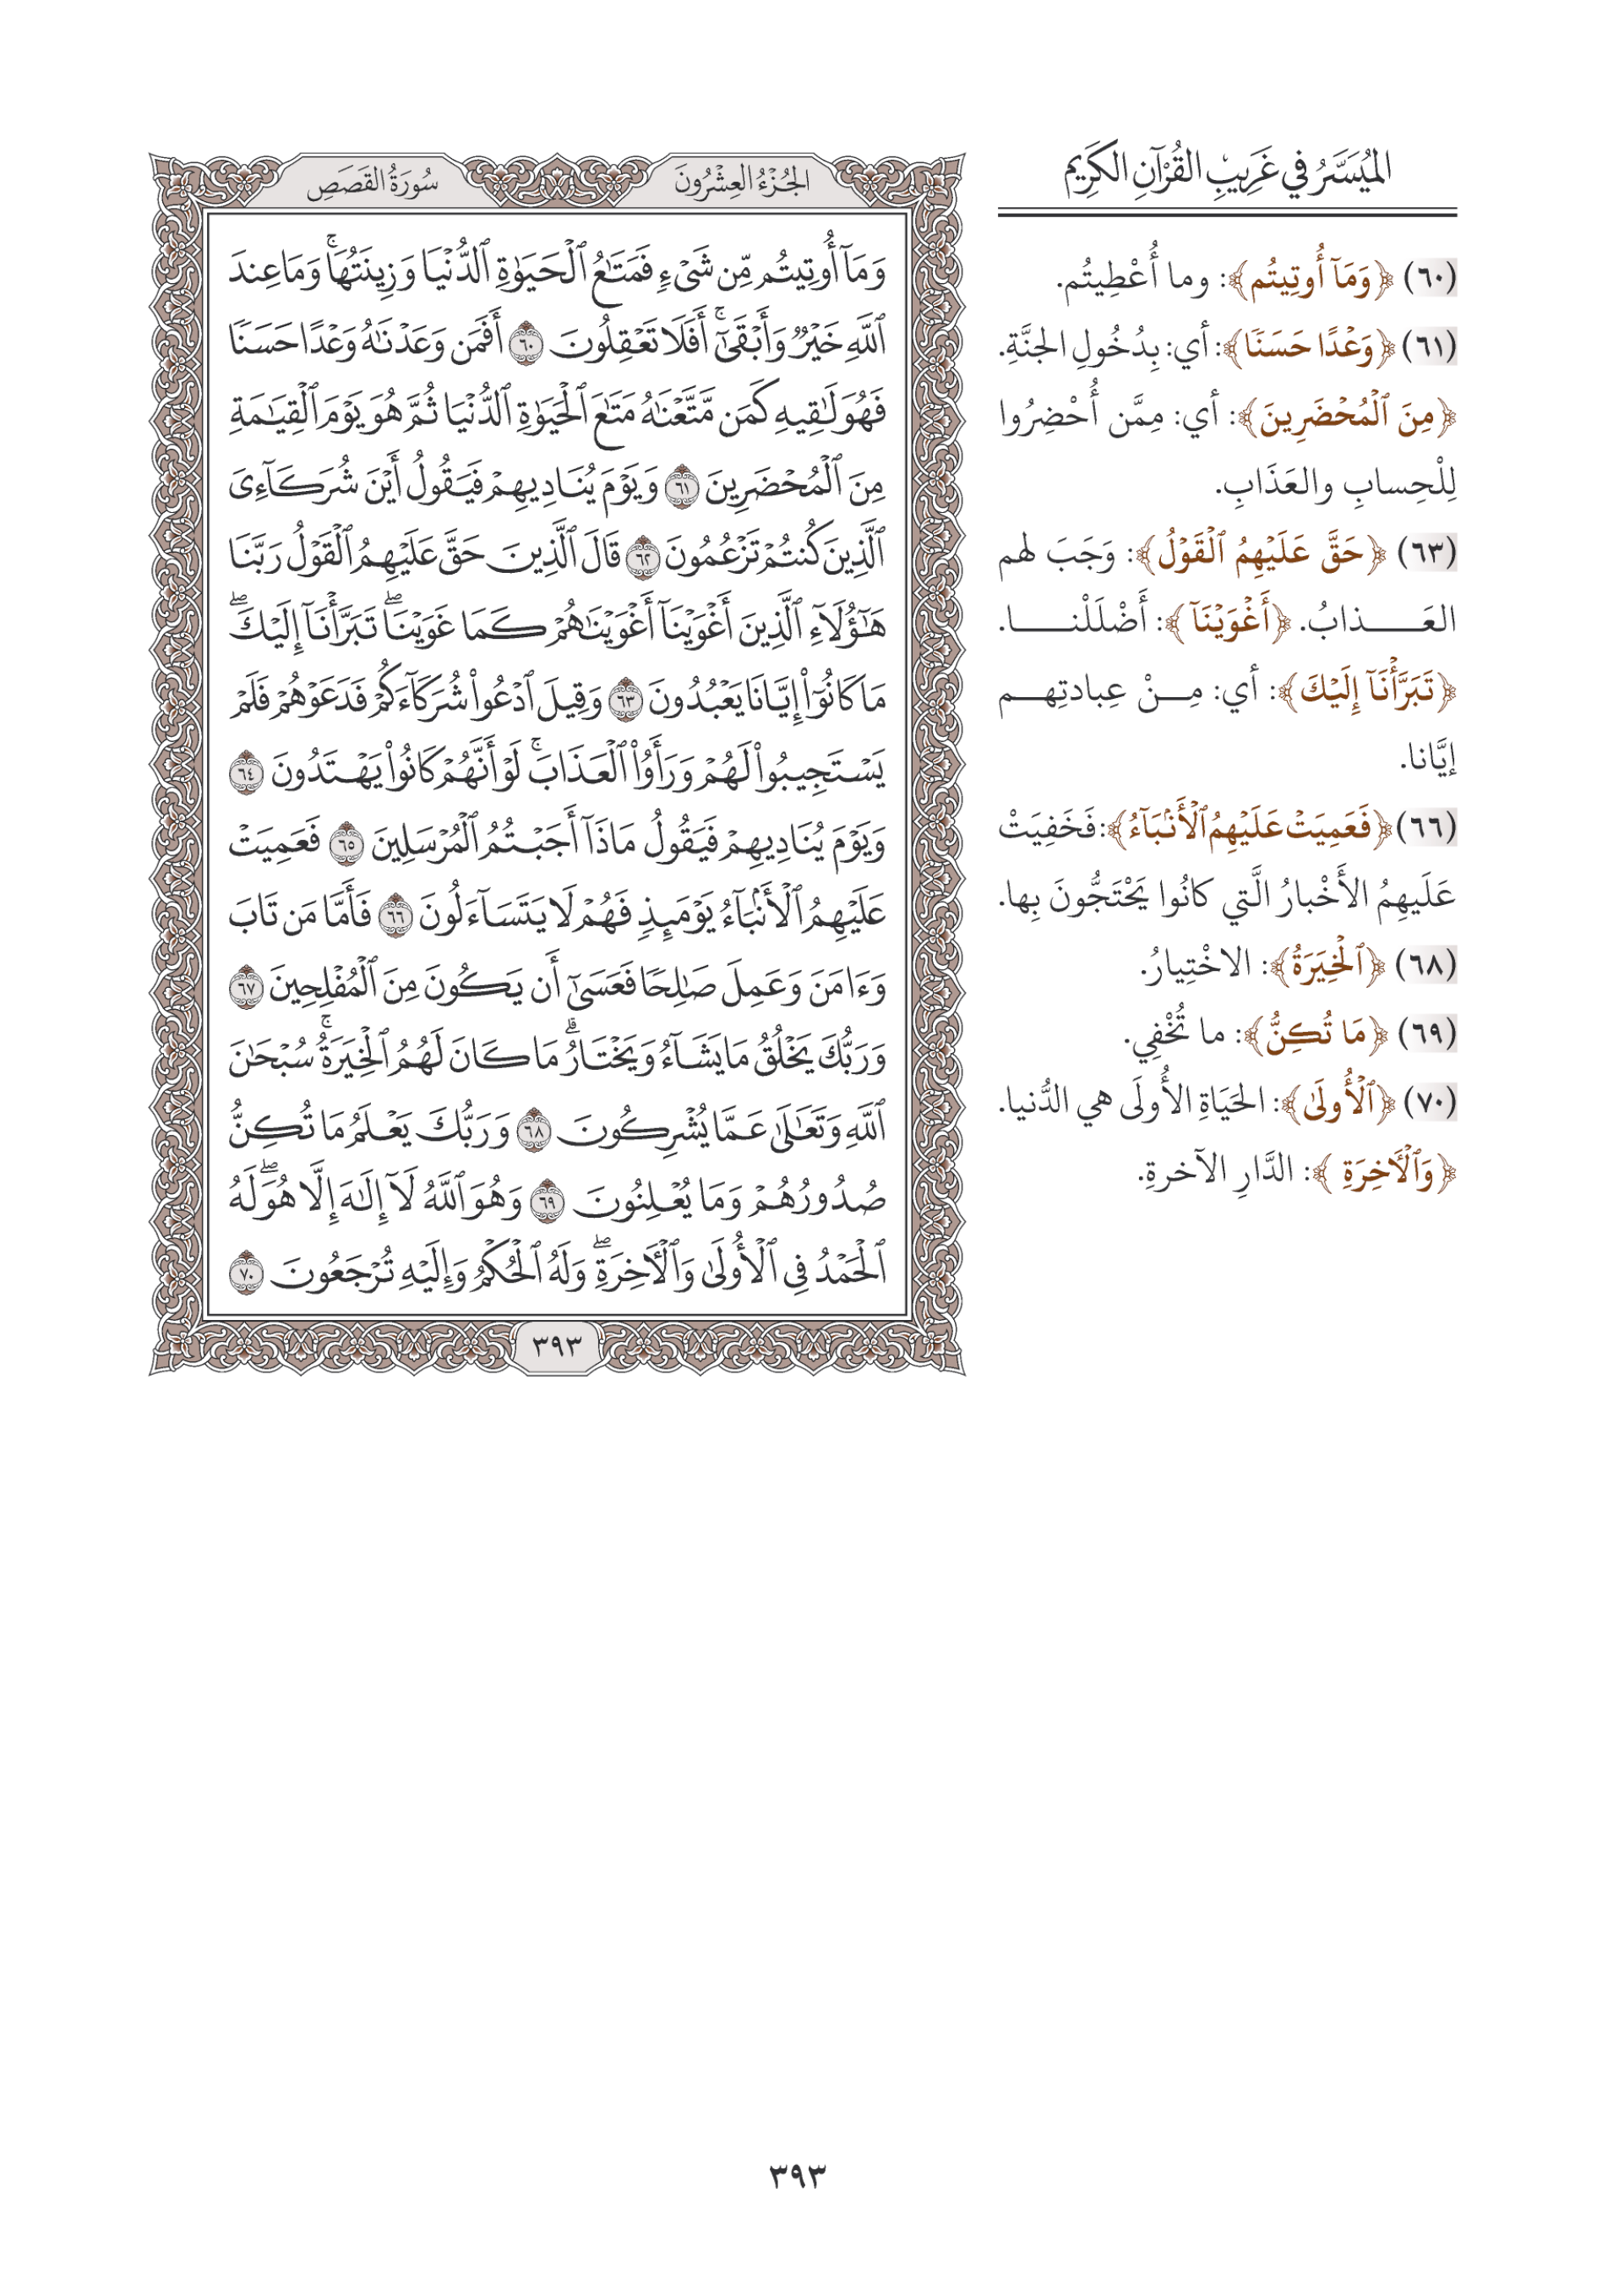 الميُسَّرُ في غَرِيبِ القُرْآنِ الكَرِيم
(٦٠) ﴿وَمَآ أُوتِيتُم﴾: وما أُعْطِيتُم.
(٦١) ﴿وَعۡدًا حَسَنٗا﴾: أي: بِدُخُولِ الجنَّةِ.
﴿مِنَ ٱلۡمُحۡضَرِينَ﴾: أي: مِمَّن أُحْضِرُوا
لِلْحِسابِ والعَذَابِ.
(٦٣) ﴿حَقَّ عَلَيۡهِمُ ٱلۡقَوۡلُ﴾: وَجَبَ لهم
العَـــذابُ. ﴿أَغۡوَيۡنَآ﴾: أَضْلَلْنـــا.
﴿تَبَرَّأۡنَآ إِلَيۡكَ﴾: أي: مِـــنْ عِبادتِهـــم
إيَّانا.
(٦٦) ﴿فَعَمِيَتۡ عَلَيۡهِمُ ٱلۡأَنۢبَآءُ﴾: فَخَفِيَتْ
عَلَيهِمُ الأَخْبارُ الَّتي كانُوا يَحْتَجُّونَ بِها.
(٦٨) ﴿ٱلۡخِيَرَةُ﴾: الاخْتِيارُ.
(٦٩) ﴿مَا تُكِنُّ﴾: ما تُخْفِي.
(٧٠) ﴿ٱلۡأُولَىٰ﴾: الحَيَاةِ الأُولَى هي الدُّنيا.
﴿وَٱلۡأٓخِرَةِ﴾: الدَّارِ الآخرةِ.
الجُزۡءُ العِشۡرُونَ
سُورَةُ القَصَصِ
وَمَآ أُوتِيتُم مِّن شَيۡءٖ فَمَتَٰعُ ٱلۡحَيَوٰةِ ٱلدُّنۡيَا وَزِينَتُهَاۚ وَمَا عِندَ
ٱللَّهِ خَيۡرٞ وَأَبۡقَىٰٓۚ أَفَلَا تَعۡقِلُونَ ٦٠ أَفَمَن وَعَدۡنَٰهُ وَعۡدًا حَسَنٗا
فَهُوَ لَٰقِيهِ كَمَن مَّتَّعۡنَٰهُ مَتَٰعَ ٱلۡحَيَوٰةِ ٱلدُّنۡيَا ثُمَّ هُوَ يَوۡمَ ٱلۡقِيَٰمَةِ
مِنَ ٱلۡمُحۡضَرِينَ ٦١ وَيَوۡمَ يُنَادِيهِمۡ فَيَقُولُ أَيۡنَ شُرَكَآءِيَ
ٱلَّذِينَ كُنتُمۡ تَزۡعُمُونَ ٦٢ قَالَ ٱلَّذِينَ حَقَّ عَلَيۡهِمُ ٱلۡقَوۡلُ رَبَّنَا
هَٰٓؤُلَآءِ ٱلَّذِينَ أَغۡوَيۡنَآ أَغۡوَيۡنَٰهُمۡ كَمَا غَوَيۡنَاۖ تَبَرَّأۡنَآ إِلَيۡكَۖ
مَا كَانُوٓاْ إِيَّانَا يَعۡبُدُونَ ٦٣ وَقِيلَ ٱدۡعُواْ شُرَكَآءَكُمۡ فَدَعَوۡهُمۡ فَلَمۡ
يَسۡتَجِيبُواْ لَهُمۡ وَرَأَوُاْ ٱلۡعَذَابَۚ لَوۡ أَنَّهُمۡ كَانُواْ يَهۡتَدُونَ ٦٤
وَيَوۡمَ يُنَادِيهِمۡ فَيَقُولُ مَاذَآ أَجَبۡتُمُ ٱلۡمُرۡسَلِينَ ٦٥ فَعَمِيَتۡ
عَلَيۡهِمُ ٱلۡأَنۢبَآءُ يَوۡمَئِذٖ فَهُمۡ لَا يَتَسَآءَلُونَ ٦٦ فَأَمَّا مَن تَابَ
وَءَامَنَ وَعَمِلَ صَٰلِحٗا فَعَسَىٰٓ أَن يَكُونَ مِنَ ٱلۡمُفۡلِحِينَ ٦٧
وَرَبُّكَ يَخۡلُقُ مَا يَشَآءُ وَيَخۡتَارُۗ مَا كَانَ لَهُمُ ٱلۡخِيَرَةُۚ سُبۡحَٰنَ
ٱللَّهِ وَتَعَٰلَىٰ عَمَّا يُشۡرِكُونَ ٦٨ وَرَبُّكَ يَعۡلَمُ مَا تُكِنُّ
صُدُورُهُمۡ وَمَا يُعۡلِنُونَ ٦٩ وَهُوَ ٱللَّهُ لَآ إِلَٰهَ إِلَّا هُوَۖ لَهُ
ٱلۡحَمۡدُ فِي ٱلۡأُولَىٰ وَٱلۡأٓخِرَةِۖ وَلَهُ ٱلۡحُكۡمُ وَإِلَيۡهِ تُرۡجَعُونَ ٧٠
٣٩٣
٣٩٣